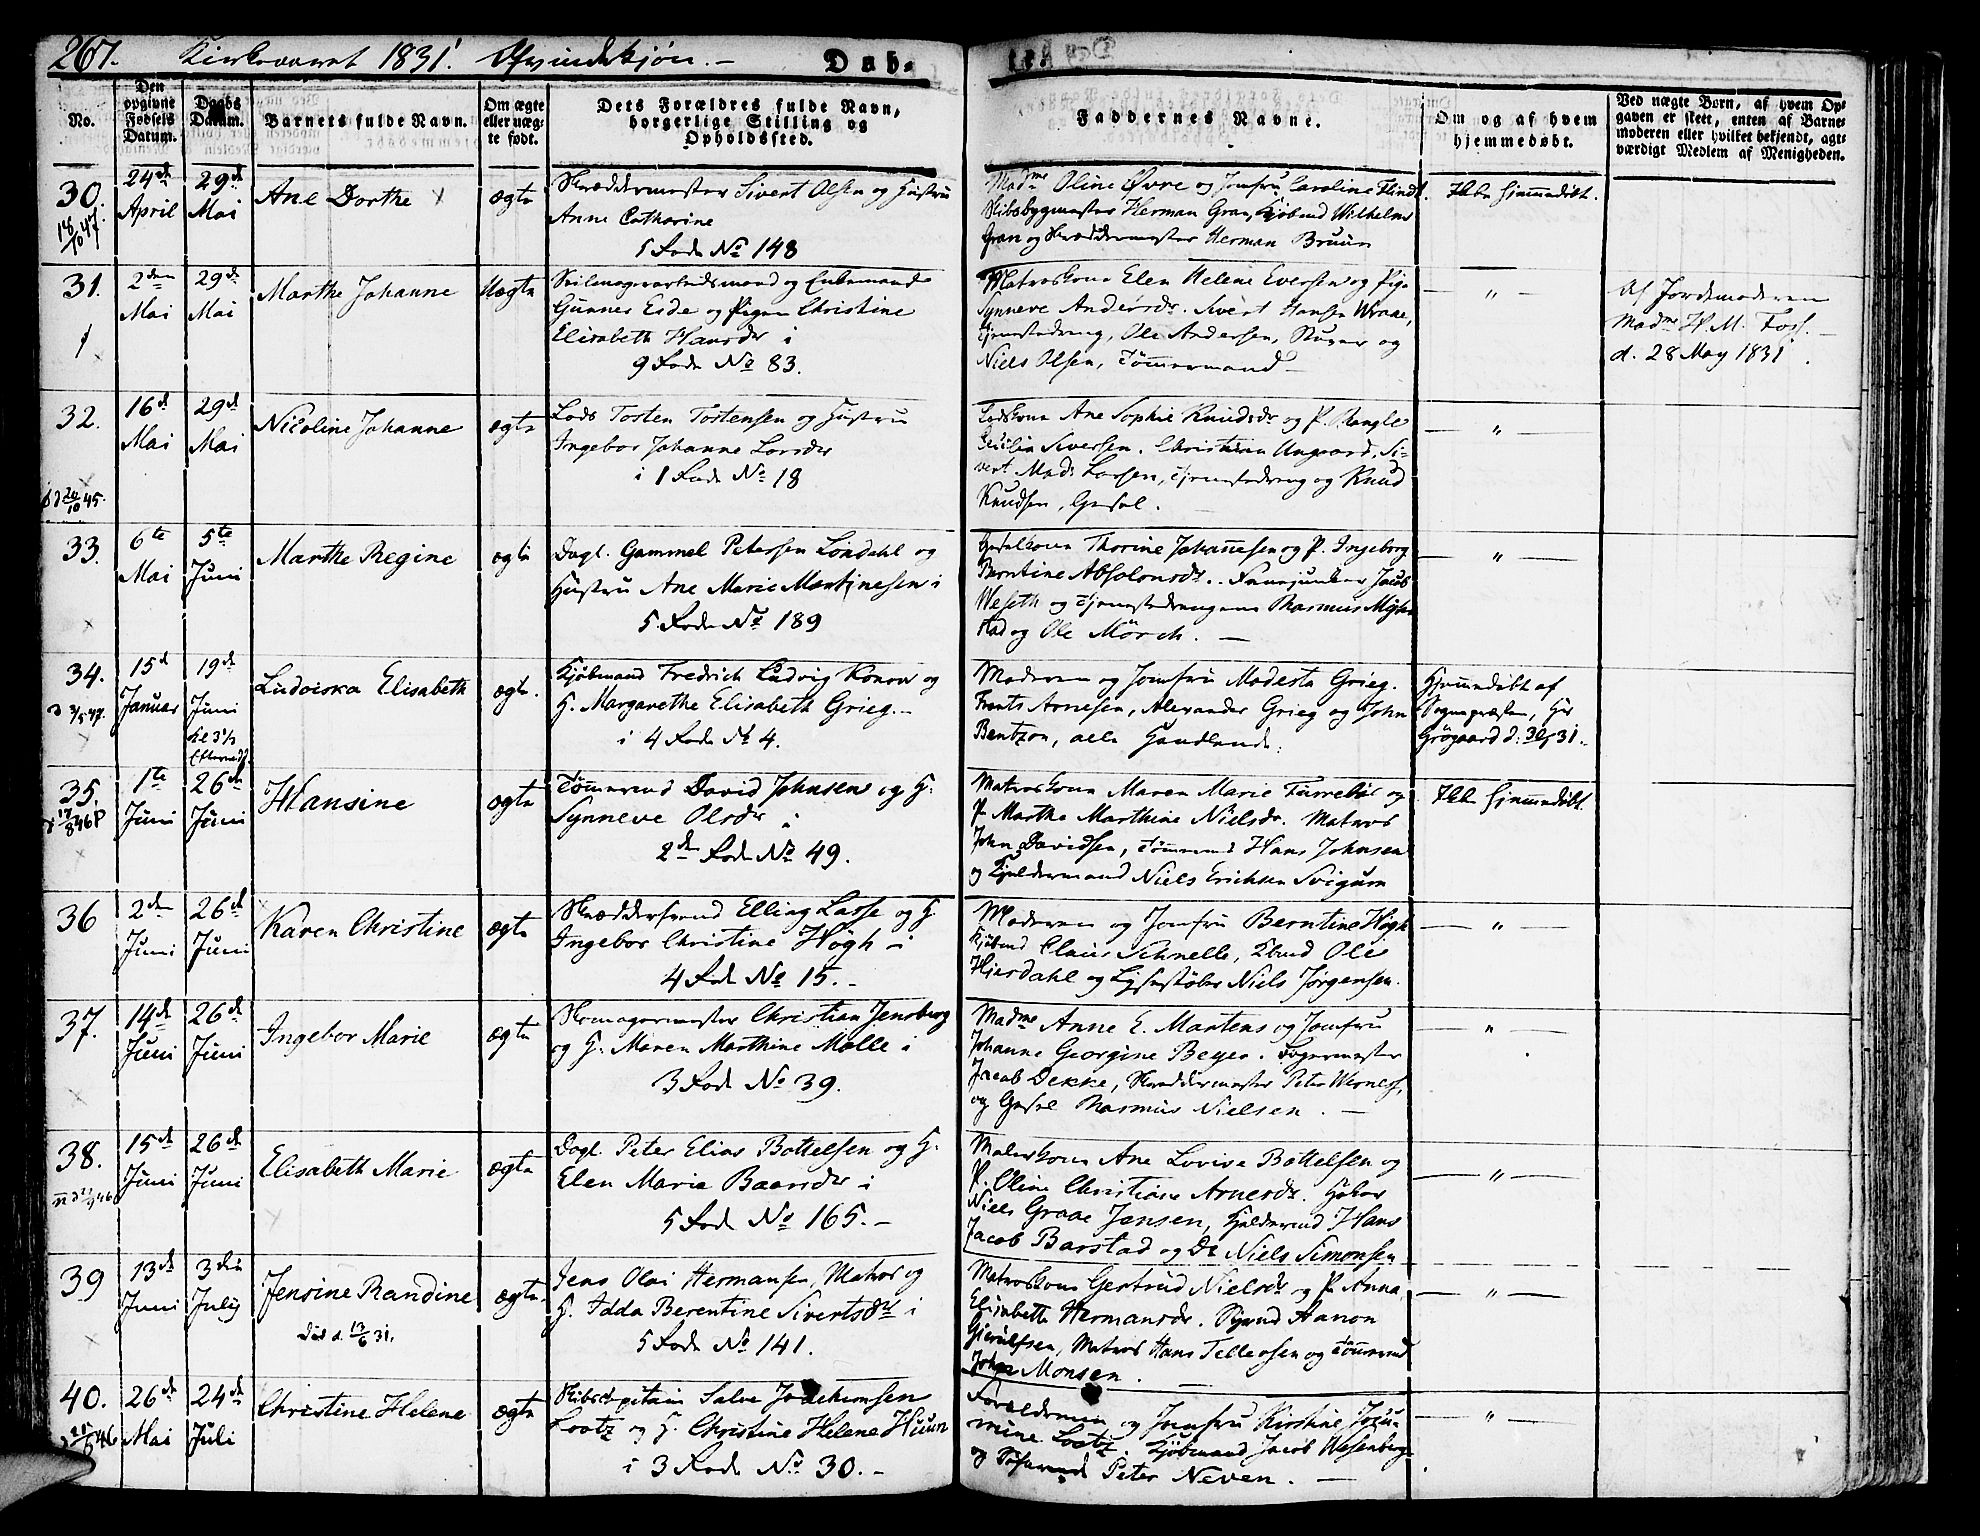 267. Kirkeaaret 1831. Qvindekjön. –
Dab-
No.
Den opgivne Fødsels Datum.
Daabs Datum.
Barnets fulde Navn.
Om ægte eller uægte født.
Dets Forældres fulde Navn, borgerlige Stilling og Opholdssted.
Faddernes Navne.
Om og af hvem hjemmedøbt.
Ved uægte Børn, af hvem Opgaven er skeet, enten af Barnemoderen eller hvilket bekjendt, agtværdigt Medlem af Menigheden.
30.
18/10 47.
24de April
29de Mai
Ane Dorthe
ægte
Skræddermester Sivert Olsen og Hustru
Anne Catharine
5 Rode No 148
Madme Oline Øvre og Jomfru Caroline Flindt
Skibsbygmester Herman Gran, Kjøbmd Wilhelm
Gran og Skræddermester Herman Bruun
Ikke hjemmedøbt.
31.
2den Mai
29de Mai
Marthe Johanne
Uægte
Gunner Esde og Pigen Christine
Elisabeth Hansdr i
9 Rode No 83.
Matroskone Elen Helene Eversen og Pige
Synneve Andersdr. Sivert Hansen Wraae,
Tjenestedreng, Ole Andersen, Skruer og
Niels Olsen, Tömmermand –
— " —
Af Jordemoderen
Madme H. M. Foss. –
d. 28 May 1831.
32.
20/10 45.
16de Mai
29de Mai
Nicoline Johanne
ægte
Lods Torsten Torstensen og Hustru
Ingebor Johanne Larsdr
i 1 Rode No 18
Lodskone Ane Sophie Knudsdr og P. Mangle
Cecilia Iversen. Christian Ungaard, Si-
vert Mads Larsen, Tjenestedreng og Knud
Knudsen, Gesel.
— " —
33.
6te Mai
5te Juni
Marthe Regine
ægte
Dagl. Gammel Petersen Londahl og
Hustru Ane Marie Martinesen i
5 Rode No 189
Geselkonen Thorine Johannesen og P. Ingeborg
Berntine Absolonsdr. Fanejunker Jacob
Weseth og Tjenestedrengene Rasmus Myhre
stad og Ole Mörch. –
— " —
34.
3/5 47.
15de Januar
19de Juni
Kl 3½
Efterm.
Ludviska Elisabeth
ægte.
Kjöbmand Fredrich Ludvig Konow og
H. Margarethe Elisabeth Grieg. –
i 4 Rode No 4.
Moderen og Jomfru Modesta Grieg.
Frants Arnesen, Alexander Grieg og John
Bentzon, alle Handlende.
Hjemmedøbt af
Sognepræsten, Hr
Grögaard d. 3/5 31.
35.
17/8 46
1te Juni
26de Juni
Hansine
ægte
Tömmermd David Johnsen og H.
Synneve Olsdr i
2den Rode No 49.
Matroskone Maren Marie Furrebøe og
P. Marthe Marthine Nielsdr. Matros
John Davidsen, Tömmermd Hans Johnsen
og Kjeldermand Niels Erichsen Svigum
Ikke hjemmedøbt.
36
2den Juni
26de Juni
Karen Christine
ægte
Skræddersvend Elling Lasse og H.
Ingebor Christine Högh i
4 Rode No 15. –
Moderen og Jomfru Berntine Högh
Kjöbmd Claus Schnelle, Ole
Hjersdahl og Lysestöber Niels Jörgensen.
— " —
37.
14de Juni
26de Juni
Ingebor Marie
ægte
Skomagermester Christian Jensberg
og H. Maren Marthine Malle i
3 Rode No 39.
Madme Anne E. Martens og Jomfru
Johanne Georgine Beyer. Bagermester
Jacob Dekke, Skræddermester Peter Werness,
og Gesel Rasmus Nielsen. –
" —
38.
15de Juni
26de Juni
Elisabeth Marie
ægte
Dagl. Peter Elias Bottelsen og H.
Elen Maria Baarsdr i
5 Rode No 165. –
Malerkone Ane Lovise Bottelsen og
P. Oline Christiane Arnesdr. Høker
Niels Graae Jensen, Kjeldermd Hans
Jacob Barstad og Do Niels Simonsen
— " —
39
13de Juni
3die July
Jensine Randine
Död d. 13/6 31.
ægte.
Jens Olai Hermansen, Matros og
H. Idda Berentine Sivertsdr i
5 Rode No 141.
Matroskone Gertrud Nielsdr og P. Anna
Elisabeth Hermansdr. Aanon
Gierulfsen, Matros Hans Tellersen og Tömmermd
Johan Monsen.
— " —
40.
26de Mai
24de Juli
Christine Helene
ægte
Skibscapitain Salve Jochumsen
Lootz og H. Christine Helene Huun
i 3 Rode No 30. –
Forældrene og Jomfru Kirstine Jocu-
mine Lootz. Kjöbmand Jacob Wesenberg
og Peter Neven. –
— " —